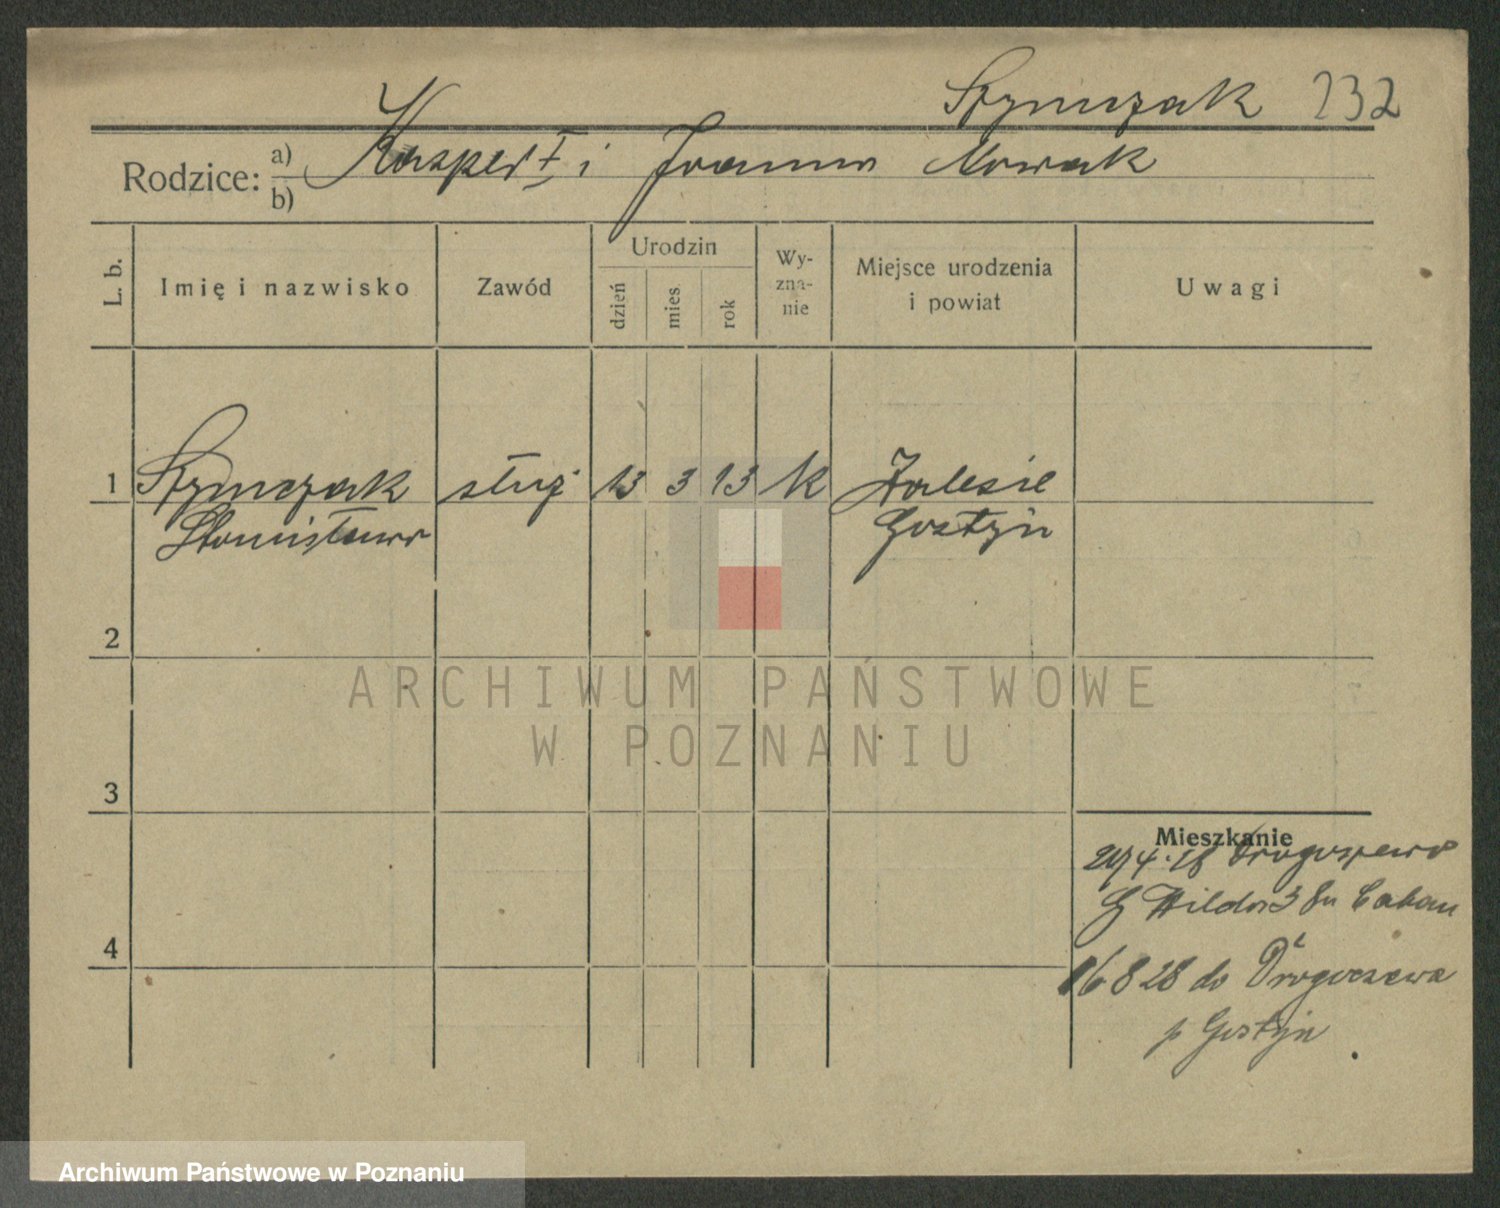 Szymczak 232
Rodzice: a) b) Kasper † i Joanna Nowak
L. b. Imię i nazwisko Zawód Urodzin dzień mies rok Wy-zna-nie Miejsce urodzenia i powiat Uwagi
1 Szymczak służ 13 3 13 k Zalesie
Stanisława Gostyń
2
3
4
Mieszkanie
4.28 Drogoszewo
G Wilda 3 Caban
16 8 28 do Drogoszewa
p Gostyń
ARCHIWUM PAŃSTWOWE
W POZNANIU
Archiwum Państwowe w Poznaniu